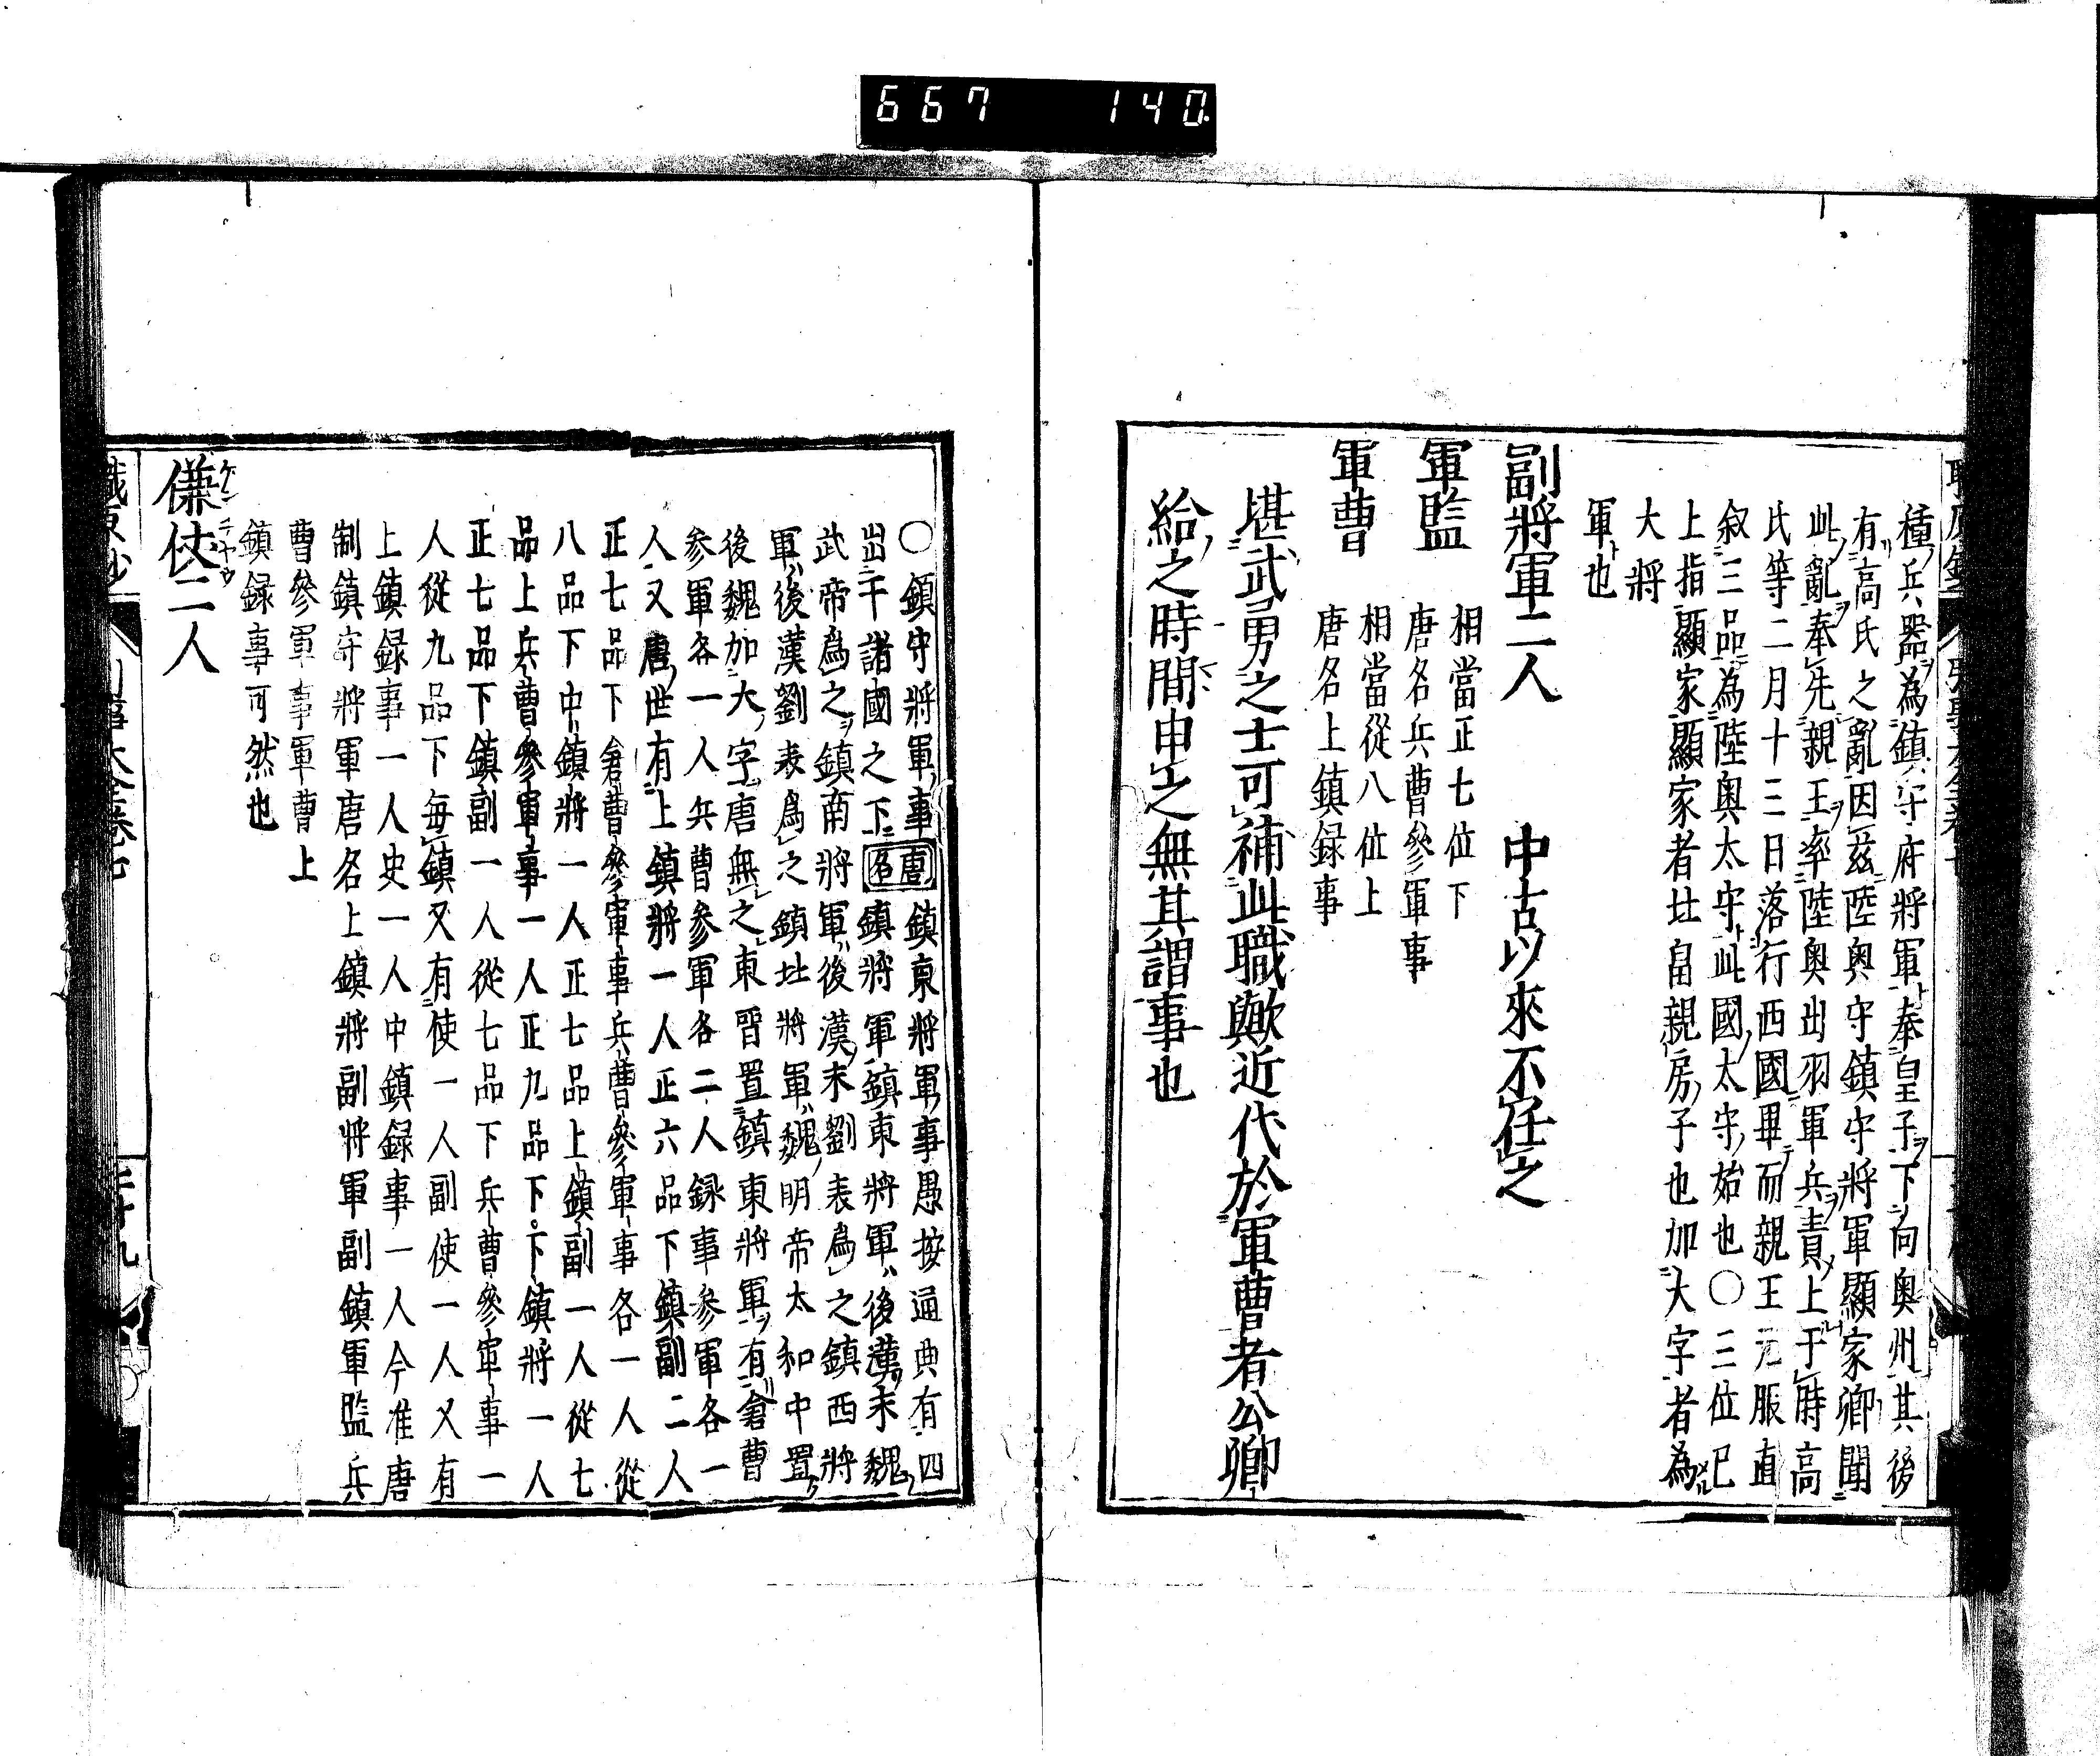 667 140
種兵器為鎮守府將軍奉皇子下向奧州其後
有高氏之亂因茲陸奧守鎮守將軍顯家卿聞
此亂奉先親王率陸奧出羽軍兵責上于時高
氏等二月十三日落行西國畢而親王元服直
叙三品為陸奧太守此國太守始也〇三位已
上指顯家顯家者北畠親房子也加大字者為
大將
軍也
副將軍二人 中古以來不任之
軍監 相當正七位下
唐名兵曹參軍事
軍曹 相當從八位上
唐名上鎮録事
堪武勇之士可補此職歟近代於軍曹者公卿
給之時間申之無其謂事也
〇鎮守將軍事唐名鎮東將軍事愚按通典有四
出于諸國之下鎮將軍鎮東將軍後漢末魏
武帝為之鎮南將軍後漢末劉表為之鎮西將
軍後漢劉表爲之鎮北將軍魏明帝太和中置
後魏加大字唐無之東晉置鎮東將軍有倉曹
參軍各一人兵曹參軍各二人録事參軍各一
人又唐世有上鎮將一人正六品下鎮副二人
正七品下倉曹參軍事兵曹參軍事各一人從
八品下中鎮將一人正七品上鎮副一人從七
品上兵曹參軍事一人正九品下下鎮將一人
正七品下鎮副一人從七品下兵曹參軍事一
人從九品下每鎮又有使一人副使一人又有
上鎮録事一人史一人中鎮録事一人今准唐
制鎮守將軍唐名上鎮將副將軍副鎮軍監兵
曹參軍事軍曹上
鎮録事可然也
傔仗二人
職原抄